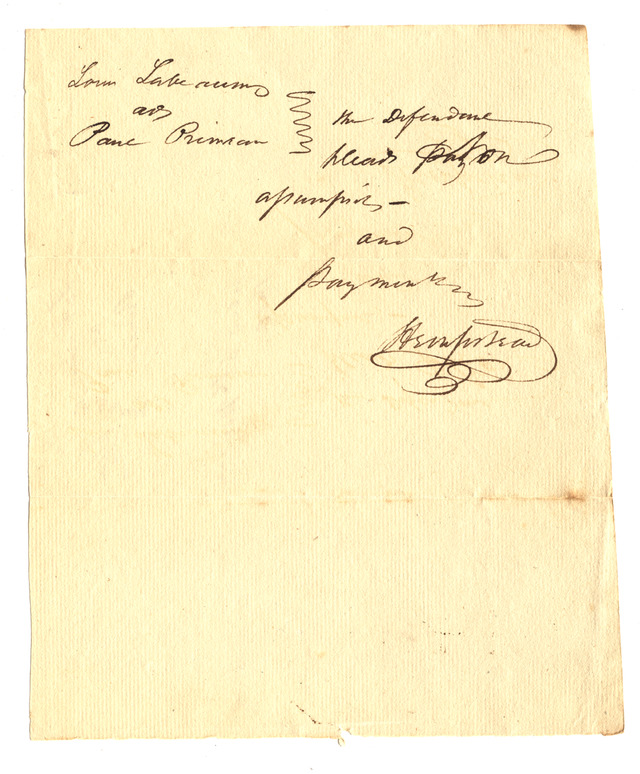 Louis Labeaume
ads
Paul Primeau
the Defendant
pleads
assumpsit —
and
payment
Hempstead